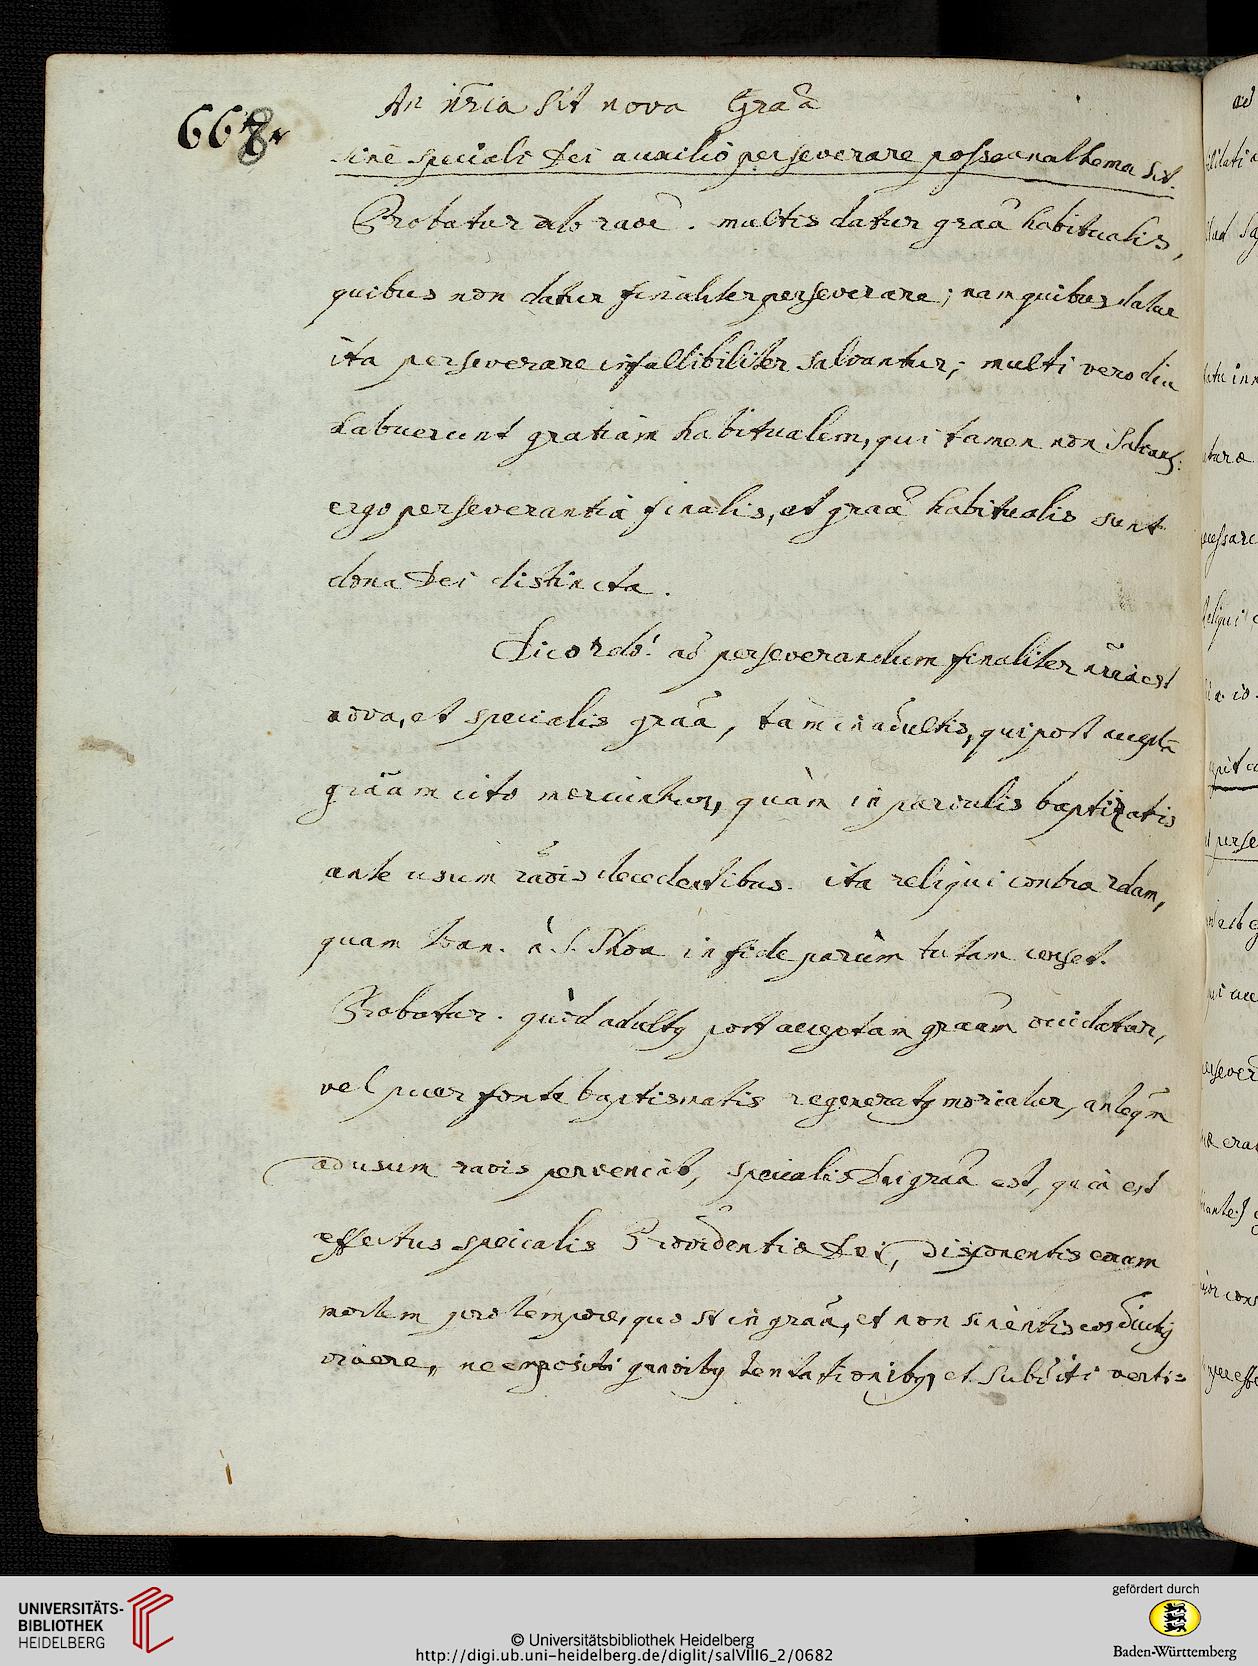 An nr̃ia sit nova Graã
668.
sine speciali Dei auxilio perseverare posse anathema sit.
Probatur ab raoẽ. multis datur graã habitualis,
quibus non datur finaliter perseverare; nam quibus datur
ita perseverare infallibiliter salvantur; multi vero diu
habuerunt gratiam habitualem, qui tamen non
ergo perseverantia finalis, et graã habitualis sunt
dona Dei distincta.
Dico 2dò: ad perseverandum finaliter nr̃ia est
nova, et specialis graã, tam in adultis, qui post acceptã
graãm cito moriuntur, quàm in parvulis baptizatis
ante usum raõis decedentibus. ita reliqui contra 2dam,
quam Ioan. à S. Thoa in fide parùm tutam censet.
Probatur. quòd adultq post acceptam graãm occidatur,
vel puer fonte baptismatis regeneratq moriatur, anteqm̃
ad usum raõis perveniat, specialis Dei graã est, quia est
effectus specialis Providentiæ Dei, disponentis
mortem pro tempore, quo st in graã, et non sinentis eos diutiq
vivere, ne expositi gravibq tentationibq, et subditi verti=
ad
perse
UNIVERSITÄTS-
BIBLIOTHEK
HEIDELBERG
© Universitätsbibliothek Heidelberg
http://digi.ub.uni-heidelberg.de/diglit/salVIII6_2/0682
gefördert durch
Baden-Württemberg